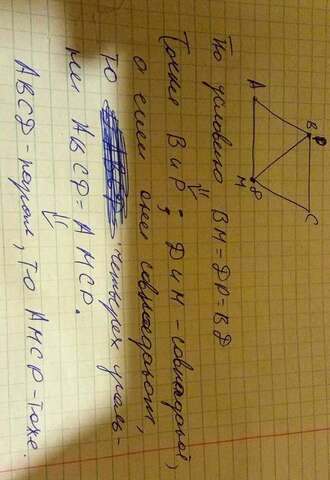 A
B
P
C
M
D
По условию BM = DP = BD
Точки B и P; D и M - совпадают,
а если они совпадают,
то четырех уголь-
ни ABCD = AMCP.
ABCD - паралл, то AMCP - тоже.